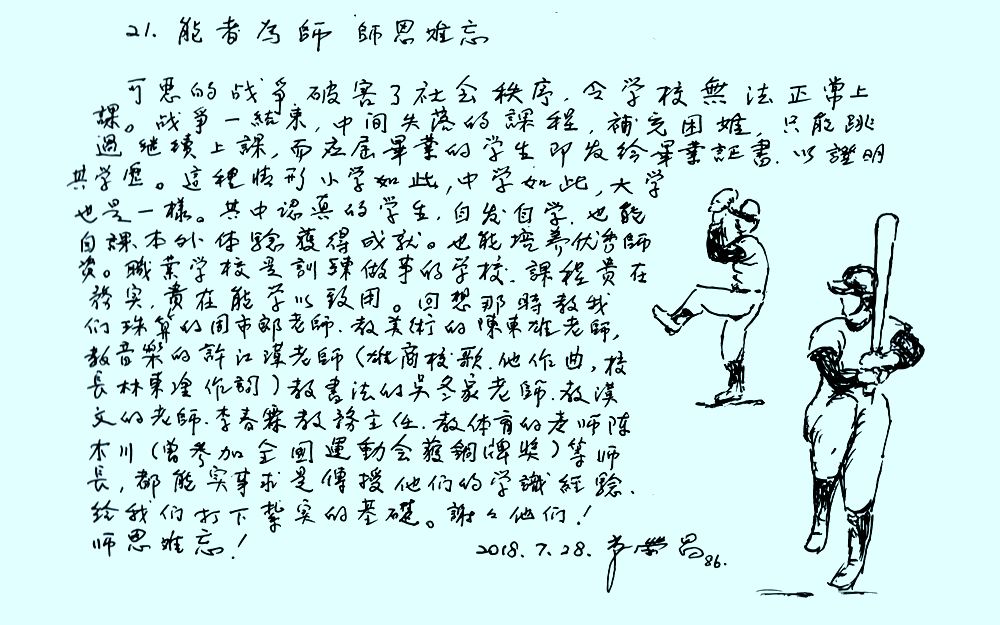 21. 能者為師 師恩难忘
可恶的战爭破害了社会秩序,令学校無法正常上
課。战爭一結束,中间失落的課程,補充困难,只能跳
過継續上課,而应届畢業的学生即发给畢業証書,以證明
其学歷。這種情形小学如此,中学如此,大学
也是一樣。其中認真的学生,自发自学,也能
自課本外体驗獲得成就。也能培养优秀師
资。職業学校是訓練做事的学校,課程貴在
務实,貴在能学以致用。回想那時教我
们珠算的周市郎老师,教美術的陳東雄老师,
教音樂的許江漢老师(雄商校歌,他作曲,校
長林東淦作詞)教書法的吴冬家老师,教漢
文的老师,李春霖教務主任,教体育的老师陈
木川(曾参加全國運動会獲銅牌獎)等师
長,都能实事求是傳授他们的学識經驗,
给我们打下紮实的基礎。謝々他们!
师恩难忘!
2018.7.28. 86.